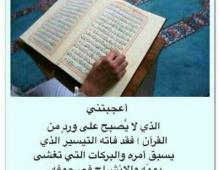 أعجبتني
الذي لا يُصبح على وردٍ من
القرآن ! فقد فاته التيسير الذي
يسبق أمره والبركات التي تغشى
يومه والإنشراح في جوفه